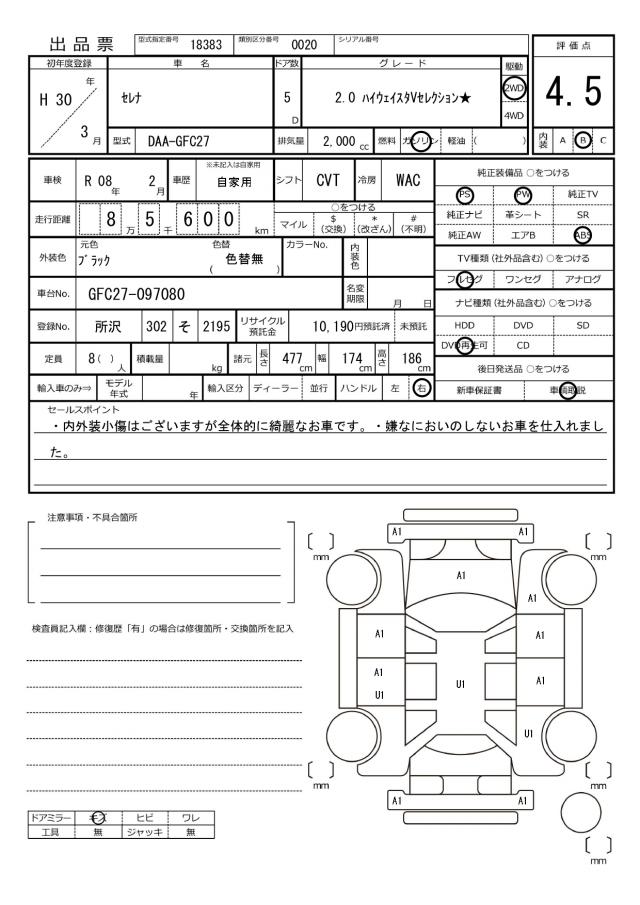 出品票 型式指定番号 18383 類別区分番号 0020 シリアル番号
評価点
4.5
内装 A B C
初年度登録 車名 ドア数 グレード 駆動
H 30 年 3 月 セレナ 5 D 2.0 ハイウェイスタVセレクション★ 2WD
4WD
型式 DAA-GFC27 排気量 2,000 cc 燃料 ガソリン 軽油 ( )
車検 R 08 年 2 月 車歴 ※未記入は自家用 自家用 シフト CVT 冷房 WAC
走行距離 8 5 6 0 0 万 千 km ○をつける
マイル $ (交換) * (改ざん) # (不明)
外装色 元色 ブラック 色替 ( 色替無 ) カラーNo. 内装色
車台No. GFC27-097080 名変期限 月 日
登録No. 所沢 302 そ 2195 リサイクル預託金 10,190円預託済 未預託
定員 8( ) 人 積載量 kg 諸元 長さ 477 cm 幅 174 cm 高さ 186 cm
輸入車のみ⇒ モデル年式 年 輸入区分 ディーラー 並行 ハンドル 左 右
純正装備品 ○をつける
PS PW 純正TV
純正ナビ 革シート SR
純正AW エアB ABS
TV種類(社外品含む) ○をつける
フルセグ ワンセグ アナログ
ナビ種類(社外品含む) ○をつける
HDD DVD SD
DVD再生可 CD
後日発送品 ○をつける
新車保証書 車輌取説
セールスポイント
・内外装小傷はございますが全体的に綺麗なお車です。・嫌なにおいのしないお車を仕入れまし
た。
注意事項・不具合箇所
検査員記入欄:修復歴「有」の場合は修復箇所・交換箇所を記入
ドアミラー キズ ヒビ ワレ
工具 無 ジャッキ 無
A1 A1
[ ] mm [ ] mm
A1
A1
A1 A1
A1 U1 U1 A1
U1
[ ] mm [ ] mm
A1 A1
[ ] mm